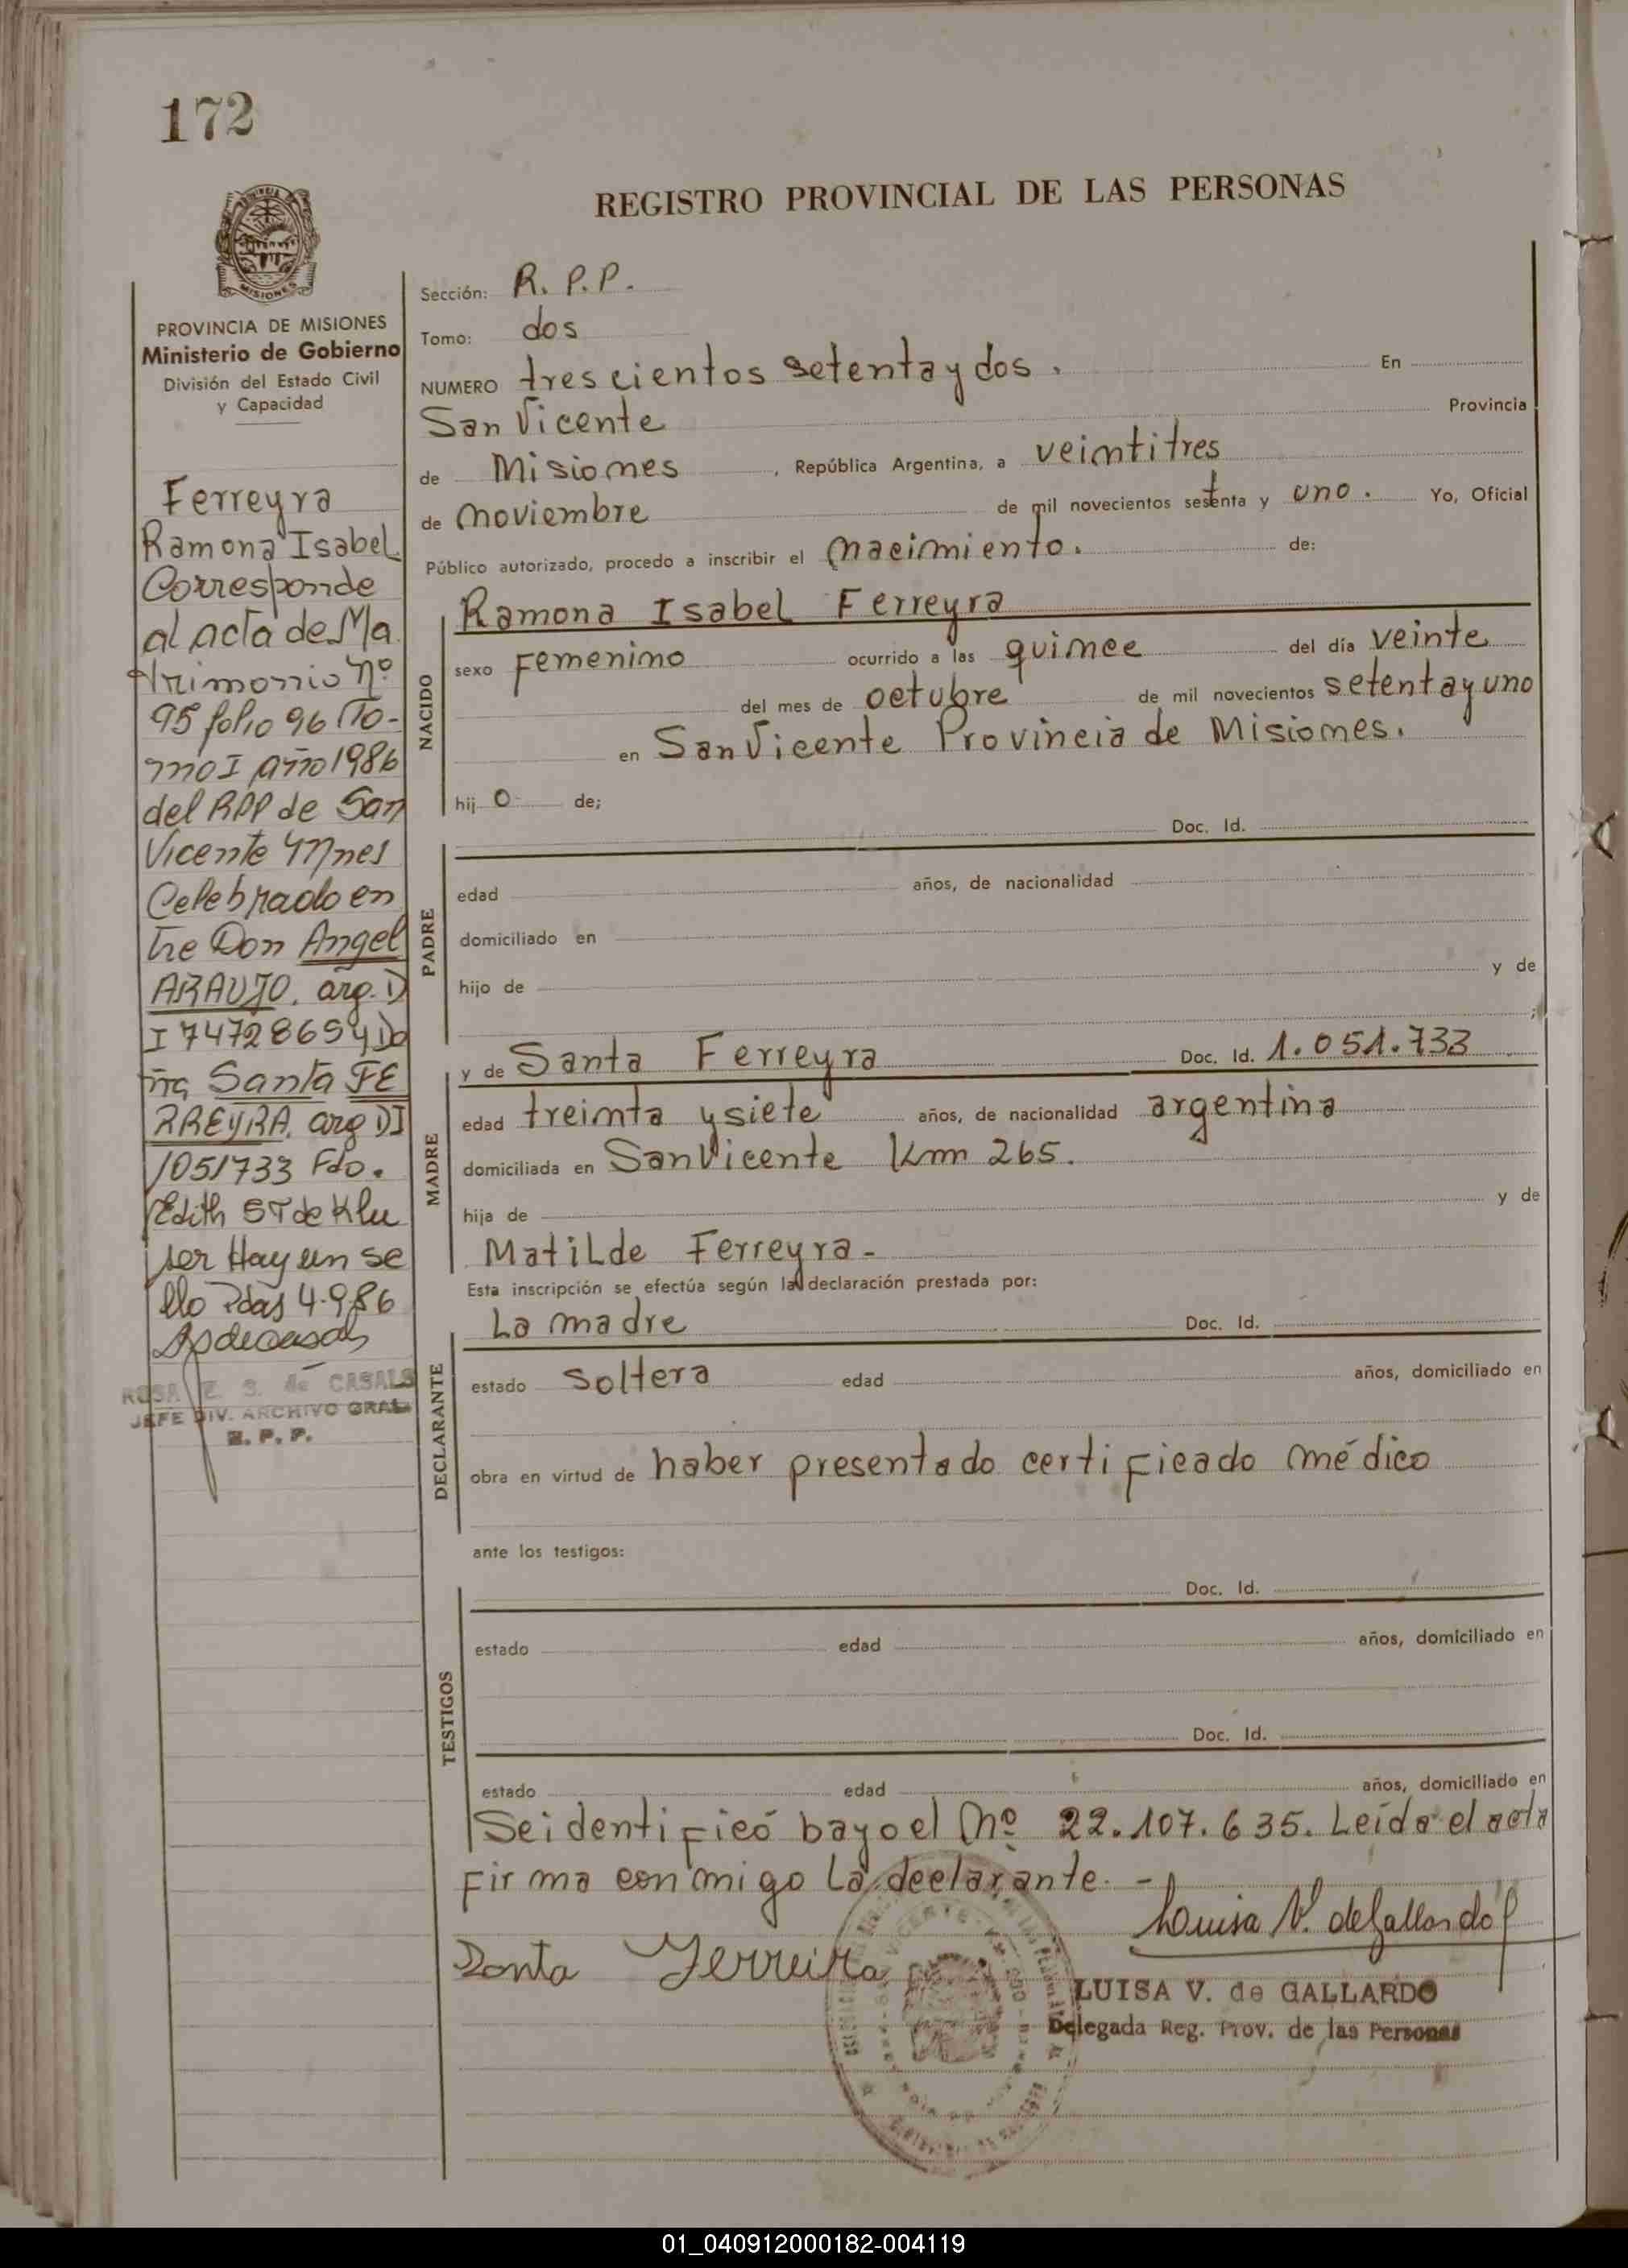 172
REGISTRO PROVINCIAL DE LAS PERSONAS
MISIONES
PROVINCIA DE MISIONES
Ministerio de Gobierno
División del Estado Civil
y Capacidad
Ferreyra
Ramona Isabel
Corresponde
al acta de Ma
trimonio nº
95 folio 96 To-
mo I año 1986
del RPP de San
Vicente Mnes
Celebrado en
tre Don Angel
ARAUJO. arg. D
I 7472865 y Do
ña Santa FE
RREYRA. arg DI
1051733 Fdo.
Edith ST de Klu
ser Hay un se
llo Pdas 4-9-86
ROSA E. S. de CASALS
JEFE DIV. ARCHIVO GRAL
R. P. P.
Sección: R. P. P.
Tomo: dos
NUMERO trescientos setenta y dos. En
San Vicente Provincia
de Misiones, República Argentina, a veintitres
de noviembre de mil novecientos setenta y uno. Yo, Oficial
Público autorizado, procedo a inscribir el nacimiento. de:
NACIDO
Ramona Isabel Ferreyra
sexo Femenino ocurrido a las quince del día veinte
del mes de octubre de mil novecientos setenta y uno
en San Vicente Provincia de Misiones.
hij o de;
PADRE
Doc. Id.
edad años, de nacionalidad
domiciliado en
hijo de y de
;
MADRE
y de Santa Ferreyra Doc. Id. 1.051.733
edad treinta y siete años, de nacionalidad argentina
domiciliada en San Vicente Km 265.
hija de y de
Matilde Ferreyra-
Esta inscripción se efectúa según la declaración prestada por:
DECLARANTE
La madre Doc. Id.
estado Soltera edad años, domiciliado en
obra en virtud de haber presentado certificado médico
ante los testigos:
TESTIGOS
Doc. Id.
estado edad años, domiciliado en
Doc. Id.
estado edad años, domiciliado en
Se identificó bayo el nº 22.107.635. Leída el acta
firma conmigo la declarante. -
Santa Ferreira
Louisa V. de Gallardo
LUISA V. de GALLARDO
Delegada Reg. Prov. de las Personas
01_040912000182-004119